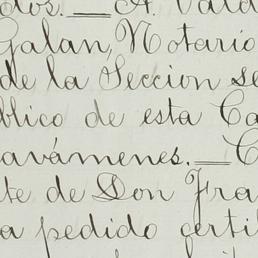 dos. — A. Vald
Galan, Notario
de la Seccion se
blico de esta Ca
avámenes. — C
te de Don Fra
a pedido certi